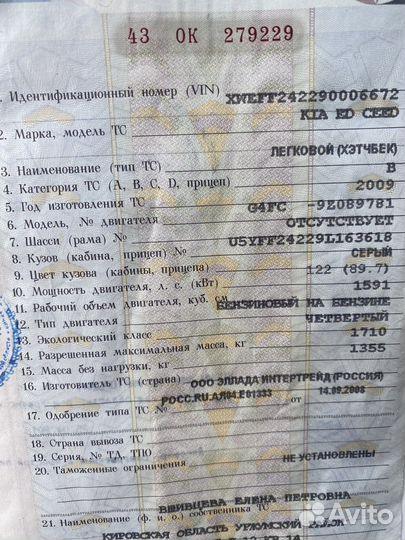 43 ОК 279229
1. Идентификационный номер (VIN) XWEFF242290006672
2. Марка, модель ТС KIA ED CEED
3. Наименование (тип ТС) ЛЕГКОВОЙ (ХЭТЧБЕК)
4. Категория ТС (А, В, С, D, прицеп) B
5. Год изготовления ТС 2009
6. Модель, № двигателя G4FC -9E089781
7. Шасси (рама) № ОТСУТСТВУЕТ
8. Кузов (кабина, прицеп) № U5YFF24229L163618
9. Цвет кузова (кабины, прицепа) СЕРЫЙ
10. Мощность двигателя, л. с. (кВт) 122 (89.7)
11. Рабочий объем двигателя, куб. см 1591
12. Тип двигателя БЕНЗИНОВЫЙ НА БЕНЗИНЕ
13. Экологический класс ЧЕТВЕРТЫЙ
14. Разрешенная максимальная масса, кг 1710
15. Масса без нагрузки, кг 1355
16. Изготовитель ТС (страна) ООО ЭЛЛАДА ИНТЕРТРЕЙД (РОССИЯ)
17. Одобрение типа ТС № РОСС.RU.АЯ04.Е01333 от 14.09.2008
18. Страна вывоза ТС
19. Серия, № ТД, ТПО
20. Таможенные ограничения НЕ УСТАНОВЛЕНЫ
ВШИВЦЕВА ЕЛЕНА ПЕТРОВНА
21. Наименование (ф. и. о.) собственника ТС
КИРОВСКАЯ ОБЛАСТЬ УРЖУМСКИЙ
Avito